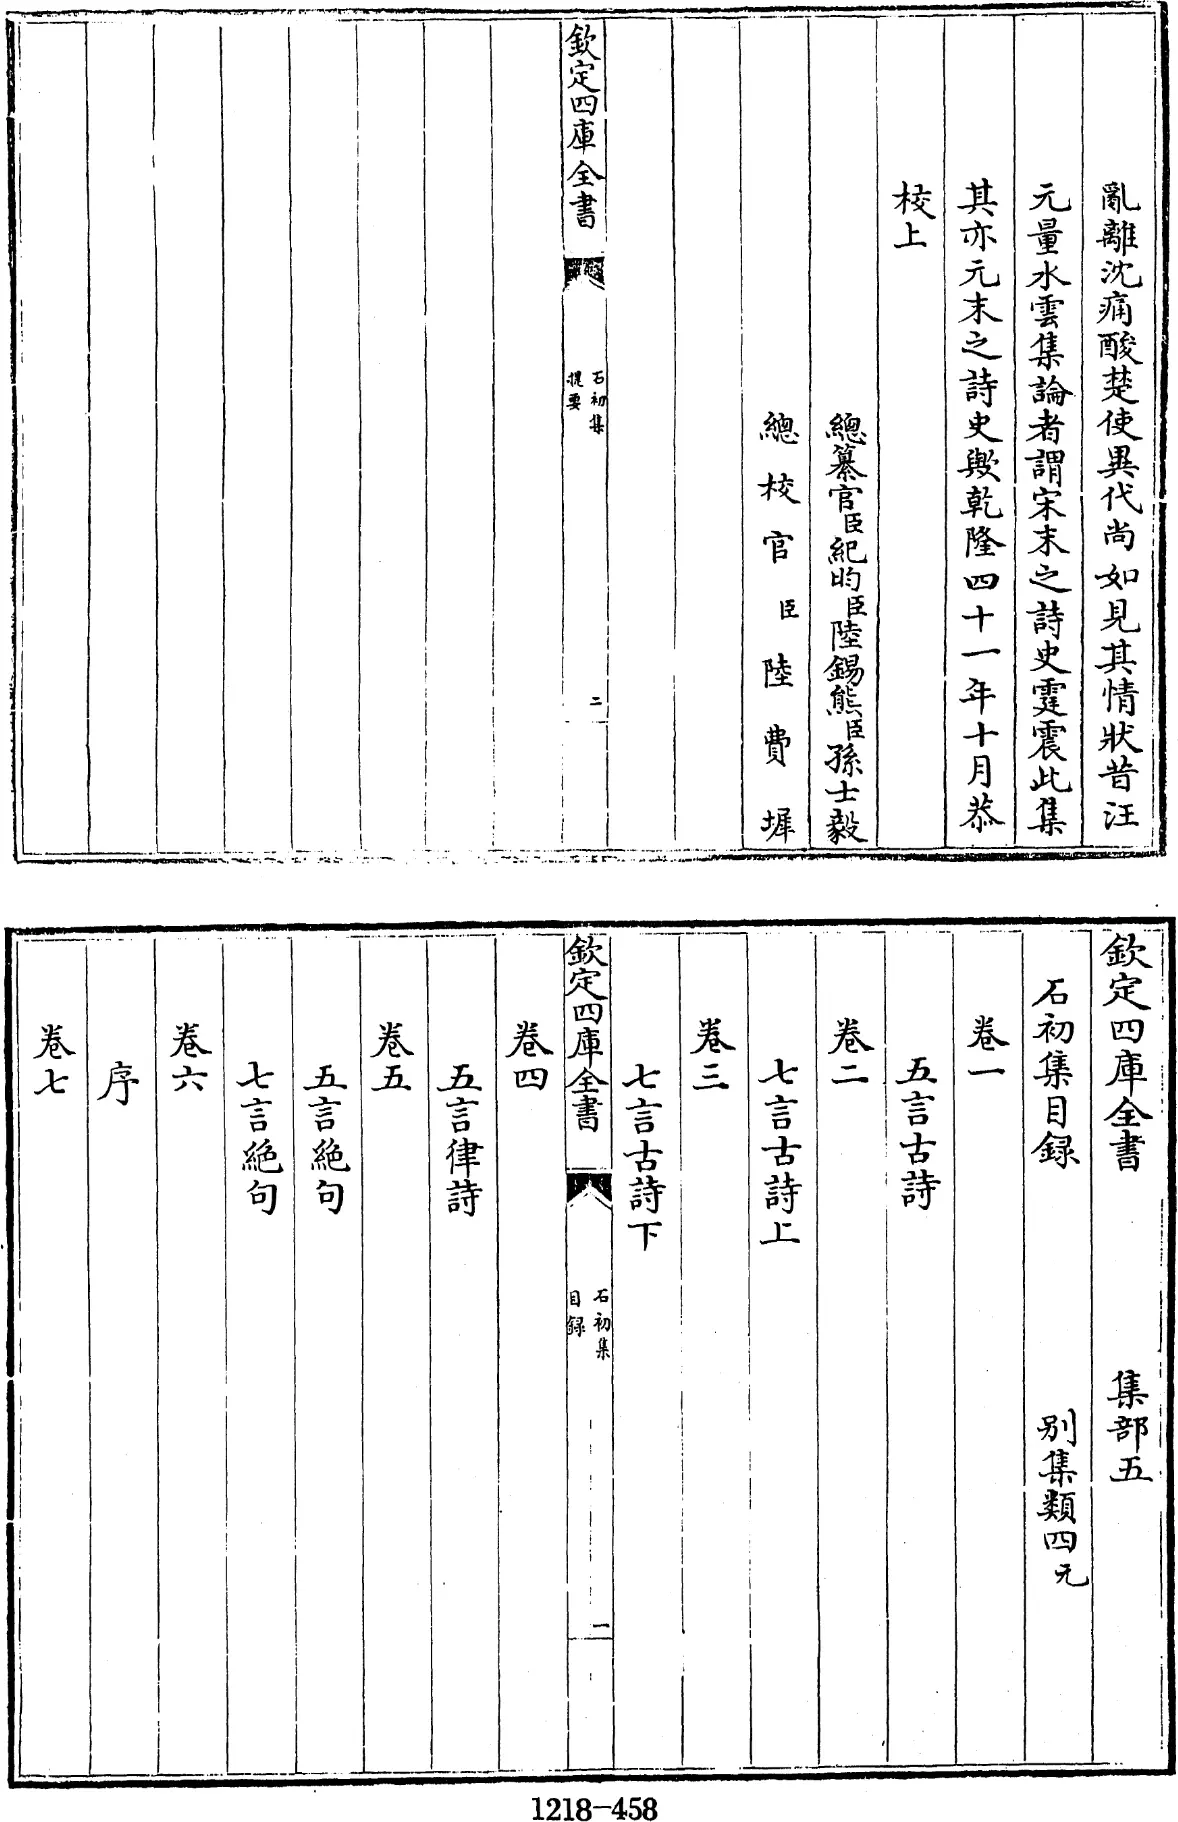 亂離沈痛酸楚使異代尚如見其情狀昔汪
元量水雲集論者謂宋末之詩史霆震此集
其亦元末之詩史歟乾隆四十一年十月恭
校上
總纂官臣紀昀臣陸錫熊臣孫士毅
總校官臣陸費墀
欽定四庫全書
石初集
提要
二
欽定四庫全書 集部五
石初集目録 别集類四元
卷一
五言古詩
卷二
七言古詩上
卷三
七言古詩下
欽定四庫全書
石初集
目録
一
卷四
五言律詩
卷五
五言絶句
七言絶句
卷六
序
卷七
1218-458